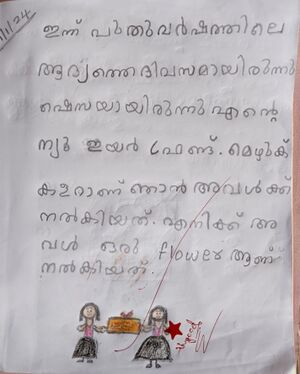 1/1/24
ഇന്ന് പുതുവർഷത്തിലെ
ആദ്യത്തെ ദിവസമായിരുന്നു
ഷെസയായിരുന്നു എന്റെ
ന്യൂ ഇയർ ഫ്രണ്ട്. മെഴുക്
കളറാണ് ഞാൻ അവൾക്ക്
നൽകിയത്. എനിക്ക് അ
വൾ ഒരു flower ആണ്
നൽകിയത്.
good